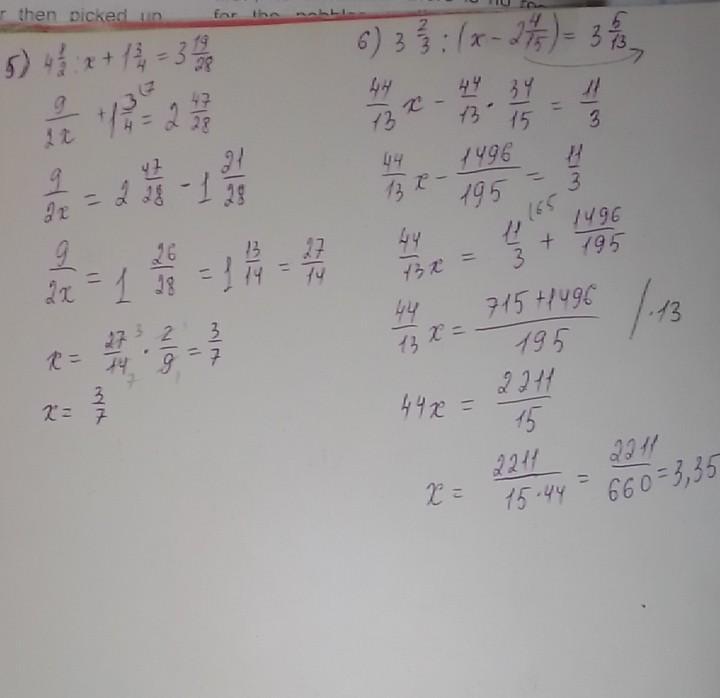 r then picked up for the pebbles
5) 4 1/2 : x + 1 3/4 = 3 19/28
9/2x + 1 3/4 (7 = 2 47/28
9/2x = 2 47/28 - 1 21/28
9/2x = 1 26/28 = 1 13/14 = 27/14
x = 27/14 · 2/9 = 3/7
3
7 1
x = 3/7
6) 3 2/3 : (x - 2 4/15) = 3 5/13
44/13 x - 44/13 · 34/15 = 11/3
44/13 x - 1496/195 = 11/3
44/13 x = 11/3 (65 + 1496/195
44/13 x = 715+1496/195 / ·13
44x = 2211/15
x = 2211/15·44 = 2211/660 = 3,35